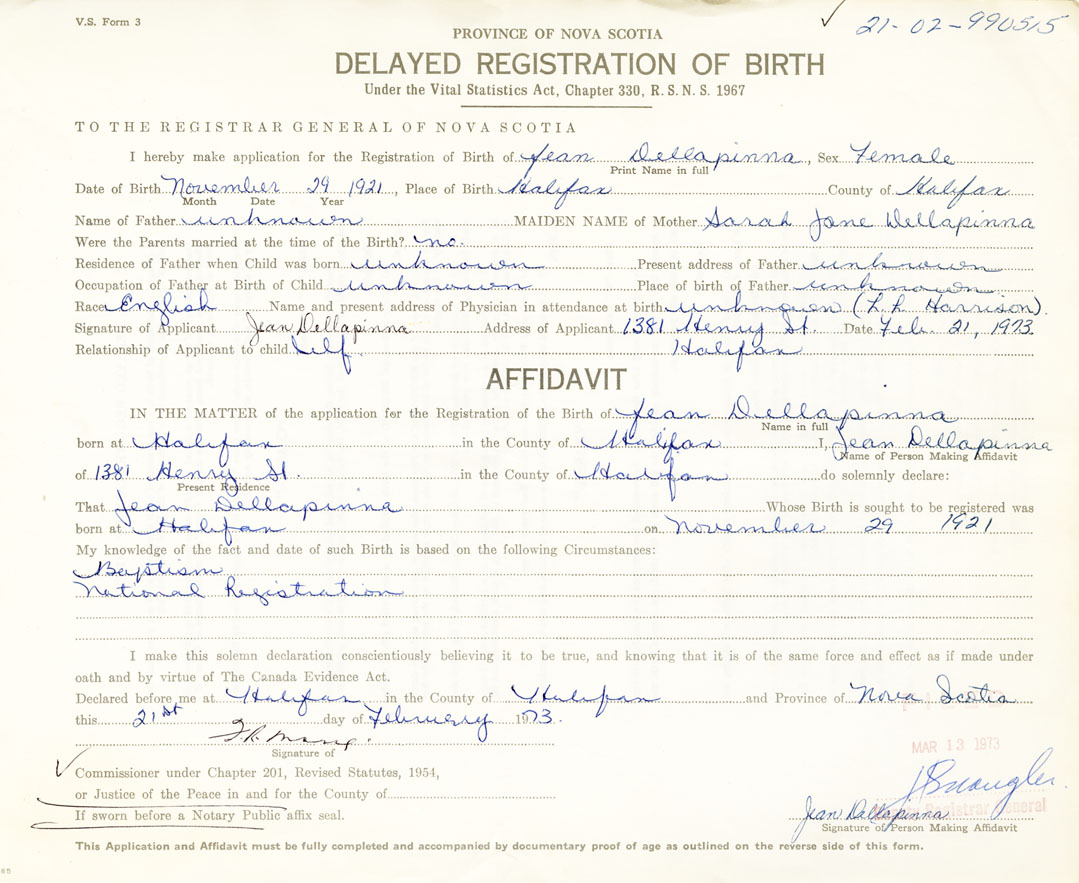 V.S. Form 3
21-02-990515
PROVINCE OF NOVA SCOTIA
DELAYED REGISTRATION OF BIRTH
Under the Vital Statistics Act, Chapter 330, R.S.N.S. 1967
TO THE REGISTRAR GENERAL OF NOVA SCOTIA
I hereby make application for the Registration of Birth of Jean Dellapinna, Sex Female
Print Name in full
Date of Birth November 29 1921, Place of Birth Halifax County of Halifax
Month Date Year
Name of Father unknown MAIDEN NAME of Mother Sarah Jane Dellapinna
Were the Parents married at the time of the Birth? no.
Residence of Father when Child was born unknown Present address of Father unknown
Occupation of Father at Birth of Child unknown Place of birth of Father unknown
Race English Name and present address of Physician in attendance at birth unknown (L.L. Harrison)
Signature of Applicant Jean Dellapinna Address of Applicant 1381 Henry St. Date Feb. 21, 1973.
Relationship of Applicant to child Self Halifax
AFFIDAVIT
IN THE MATTER of the application for the Registration of the Birth of Jean Dellapinna
Name in full
born at Halifax in the County of Halifax I, Jean Dellapinna
Name of Person Making Affidavit
of 1381 Henry St. in the County of Halifax do solemnly declare:
Present Residence
That Jean Dellapinna Whose Birth is sought to be registered was
born at Halifax on November 29 1921
My knowledge of the fact and date of such Birth is based on the following Circumstances:
Baptism
National Registration
I make this solemn declaration conscientiously believing it to be true, and knowing that it is of the same force and effect as if made under
oath and by virtue of The Canada Evidence Act.
Declared before me at Halifax in the County of Halifax and Province of Nova Scotia
this 21st day of February 1973.
Signature of
MAR 13 1973
Commissioner under Chapter 201, Revised Statutes, 1954,
or Justice of the Peace in and for the County of
Registrar General
If sworn before a Notary Public affix seal.
Jean Dellapinna
Signature of Person Making Affidavit
This Application and Affidavit must be fully completed and accompanied by documentary proof of age as outlined on the reverse side of this form.